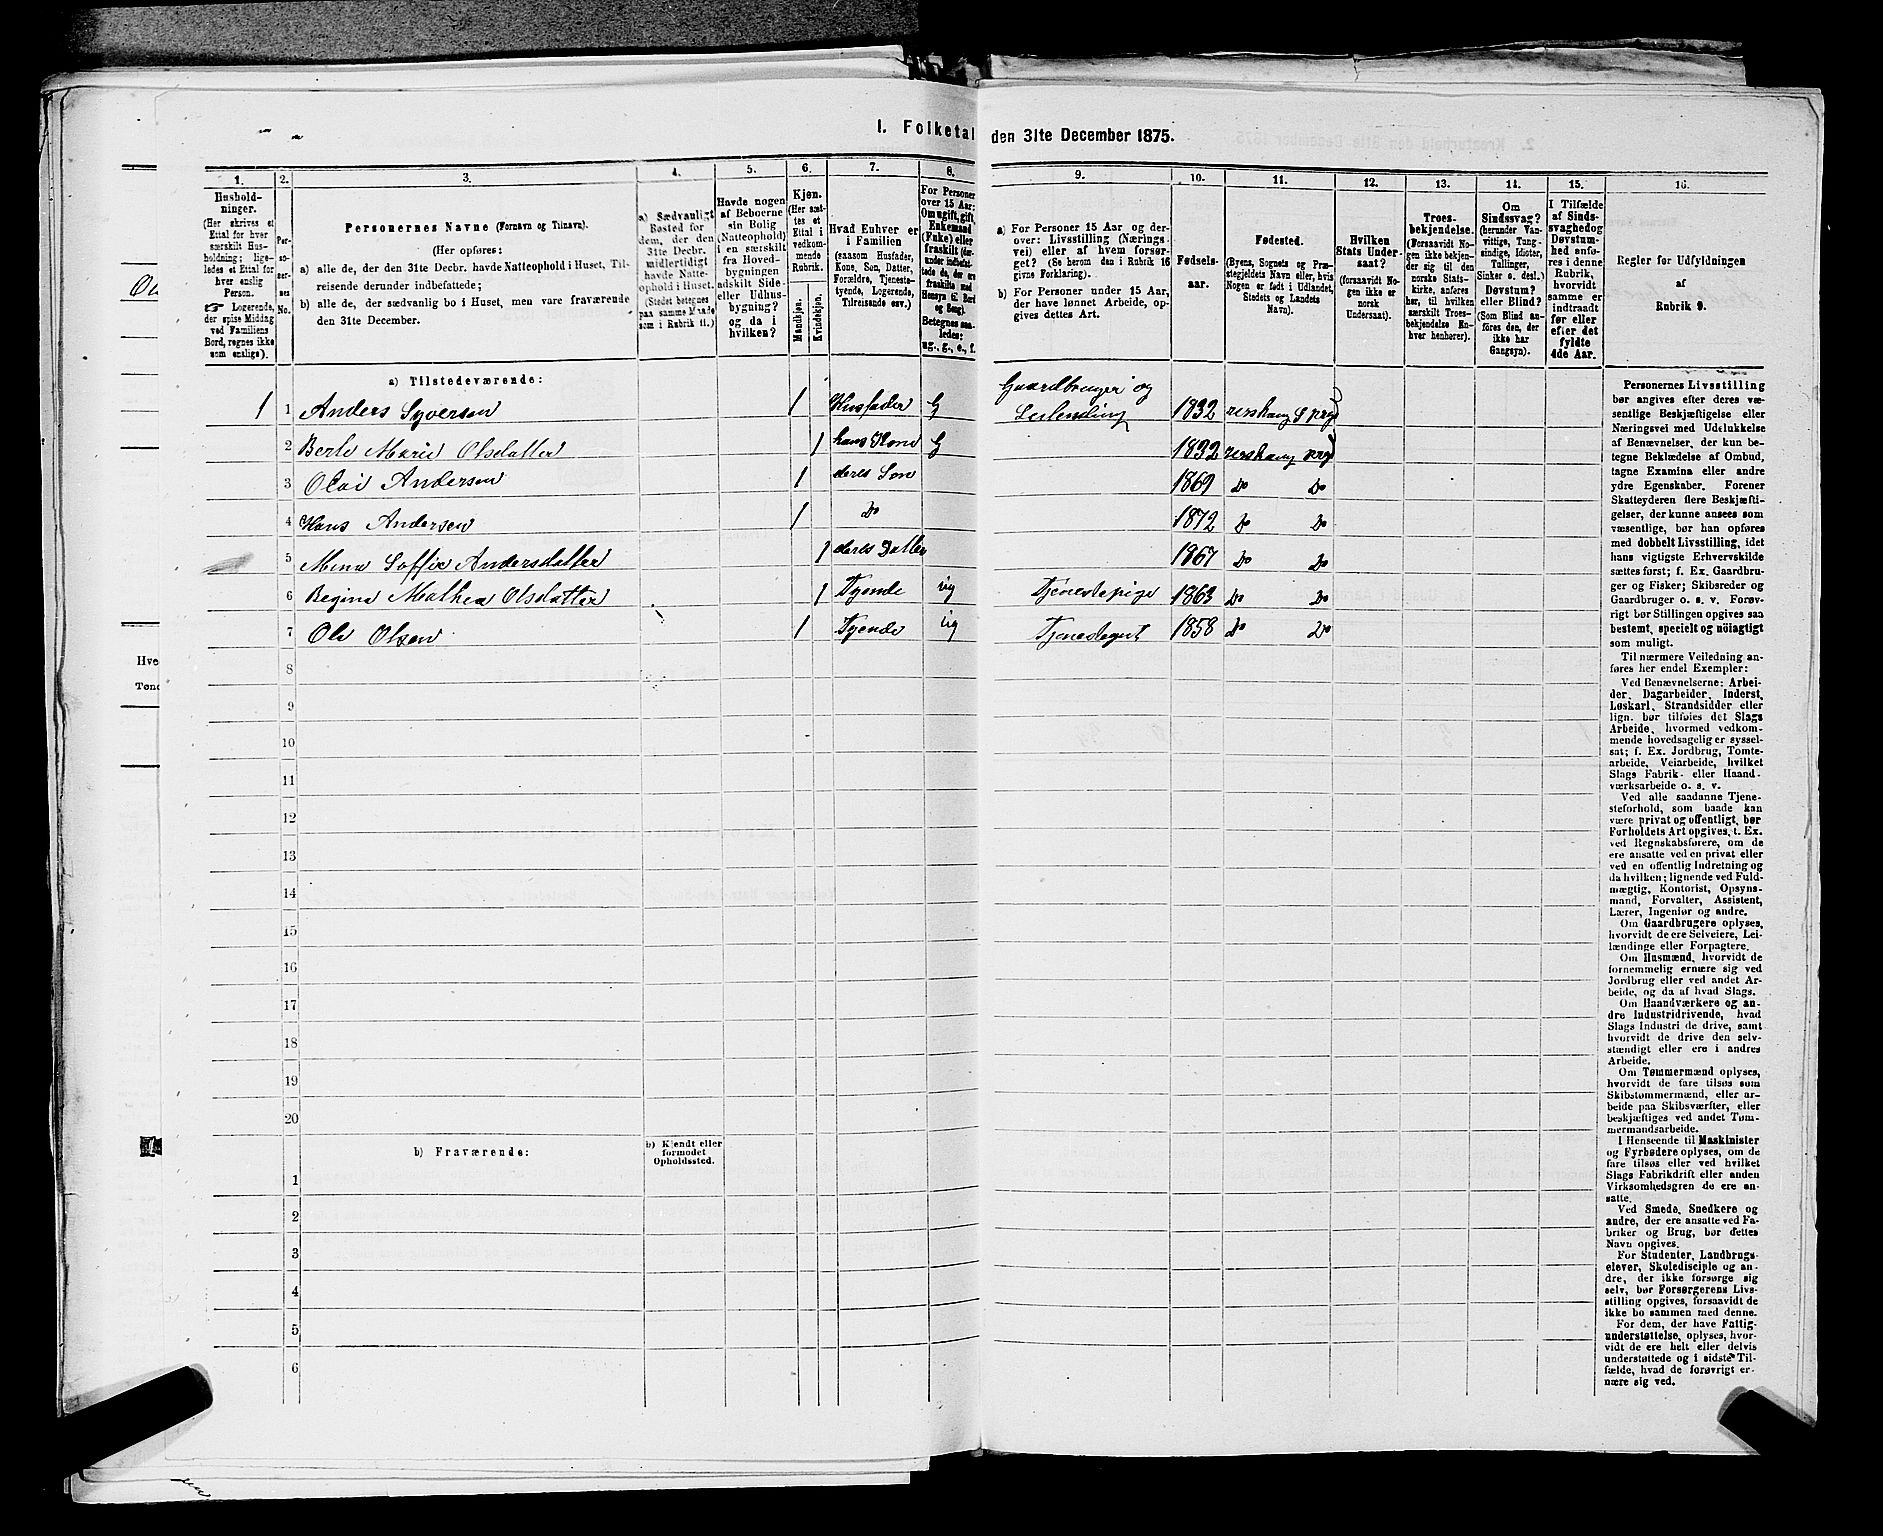 1. Folketal den 31te December 1875.
1. 2. 3. 4. 5. 6. 7. 8. 9. 10. 11. 12. 13. 14. 15. 16.
Husholdninger.
(Her skrives et
Ettal for hver
særskilt Husholdning;
ligeledes et Ettal for
hver enslig
Person.
Logerende,
der spise Middag
ved Familiens
Bord, regnes ikke
som enslige).
Personernes No.
Personernes Navne (Fornavn og Tilnavn).
(Her opføres:
a) alle de, der den 31te Decbr. havde Natteophold i Huset, Tilreisende derunder indbefattede;
b) alle de, der sædvanlig bo i Huset, men vare fraværende
den 31te December.
a) Sædvanligt
Bosted for
dem, der den
31te Decbr.
midlertidigt
havde Natteophold i Huset.
(Stedet betegnes
paa samme Maade
som i Rubrik 11.)
Havde nogen
af Beboerne
sin Bolig
(Natteophold)
i en særskilt
fra Hovedbygningen
adskilt Side-
eller Udhusbygning?
og da i
hvilken?
Kjøn.
(Her sættes et
Ettal i
vedkommende
Rubrik.
Mandkjøn.
Kvindekjøn.
Hvad Enhver er
i Familien
(saasom Husfader,
Kone, Søn, Datter,
Forældre, Tjenestetyende, Logerende,
Tilreisende osv.)
For Personer
over 15 Aar:
Om ugift, gift,
Enkemand
(Enke) eller
fraskilt
Betegnes saaledes:
ug., g., e., f.
a) For Personer 15 Aar og derover: Livsstilling (Næringsvei) eller af hvem forsørget? (Se herom den i Rubrik 16
givne Forklaring).
b) For Personer under 15 Aar,
der have lønnet Arbeide, opgives dettes Art.
Fødselsaar.
Fødested.
(Byens, Sognets og Præstegjeldets Navn eller, hvis
Nogen er født i Udlandet,
Stedets og Landets
Navn).
Hvilken
Stats Undersaat?
(forsaavidt Nogen ikke er
norsk
Undersaat).
Troesbekjendelse.
(Forsaavidt Nogen ikke bekjender sig til den
norske Statskirke, anføres
her, til hvilken
særskilt Troesbekjendelse Enhver henhører).
Om
Sindssvag?
(herunder Vanvittige, Tungsindige, Idioter,
Tullinger,
Sinker o. desl.)
Døvstum?
eller Blind?
(Som Blind anføres den, der
ikke har
Gangsyn).
I Tilfælde
af Sindssvaghed og
Døvstumhed anføres i denne
Rubrik,
hvorvidt
samme er
indtraadt
før eller
efter det
fyldte
4de Aar.
Regler for Udfyldningen
af
Rubrik 9.
a) Tilstedeværende:
1 1 Anders Syversen 1 Husfader G Gaardbruger og Leilending 1832
2 Berte Marie Olsdatter 1 hans Kone G 1832
3 Olai Andersen 1 deres Søn 1869 Do Do
4 Hans Andersen 1 Do 1872 Do Do
5 Mina Soffie Andersdatter 1 deres Datter 1867 Do Do
6 Regine Mathea Olsdatter 1 Tyende ug Tjenestepige 1863 Do Do
7 Ole Olsen 1 Tyende ug Tjenestegut 1858 Do Do
8
9
10
11
12
13
14
15
16
17
18
19
20
b) Fraværende:
b) Kjendt eller
formodet
Opholdssted.
1
2
3
4
5
6
Personernes Livsstilling
bør angives efter deres væsentlige Beskjæftigelse eller
Næringsvei med Udelukkelse
af Benævnelser, der kun betegne Beklædelse af Ombud,
tagne Examina eller andre
ydre Egenskaber. Forener
Skatteyderen flere Beskjæftigelser, der kunne ansees som
væsentlige, bør han opføres
med dobbelt Livsstilling, idet
hans vigtigste Erhvervskilde
sættes først; f. Ex. Gaardbruger og Fisker; Skibsreder og
Gaardbruger o. s. v. Forøvrigt bør Stillingen opgives saa
bestemt, specielt og nöiagtigt
som muligt.
Til nærmere Veiledning anføres her endel Exempler:
Ved Benævnelserne: Arbeider, Dagarbeider, Inderst,
Løskarl, Strandsidder eller
lign. bør tilføies det Slags
Arbeide, hvormed vedkommende hovedsagelig er sysselsat; f. Ex. Jordbrug, Tomtearbeide, Veiarbeide, hvilket
Slags Fabrik- eller Haandværksarbeide o. s. v.
Ved alle saadanne Tjenesteforhold, som baade kan
være privat og offentligt, bør
Forholdets Art opgives, t. Ex.
ved Regnskabsførere, om de
ere ansatte ved en privat eller
ved en offentlig Indretning og
da hvilken; lignende ved Fuldmægtig, Kontorist, Opsynsmand, Forvalter, Assistent,
Lærer, Ingeniør og andre.
Om Gaardbrugere oplyses,
hvorvidt de ere Selveiere, Leilændinge eller Forpagtere.
Om Husmænd, hvorvidt de
fornemmelig ernære sig ved
Jordbrug eller ved andet Arbeide, og da af hvad Slags.
Om Haandværkere og andre Industridrivende, hvad
Slags Industri de drive, samt
hvorvidt de drive den selvstændigt eller ere i andres
Arbeide.
Om Tømmermænd oplyses,
hvorvidt de fare tilsøs som
Skibstømmermænd, eller arbeide paa Skibsværfter, eller
beskjæftiges ved andet Tømmermandsarbeide.
I Henseende til Maskinister
og Fyrbødere oplyses, om de
fare tilsøs eller ved hvilket
Slags Fabrikdrift eller anden
Virksomhedsgren de ere ansatte.
Ved Smede, Snedkere og
andre, der ere ansatte ved Fabriker og Brug, bør dettes
Navn opgives.
For Studenter, Landbrugselever, Skoledisciple og andre, der ikke forsørge sig
selv, bør Forsørgerens Livsstilling opgives, forsaavidt de
ikke bo sammen med denne.
For dem, der have Fattigunderstøttelse, oplyses, hvorvidt de ere helt eller delvis
understøttede og i sidste Tilfælde, hvad de forøvrigt ernære sig ved.